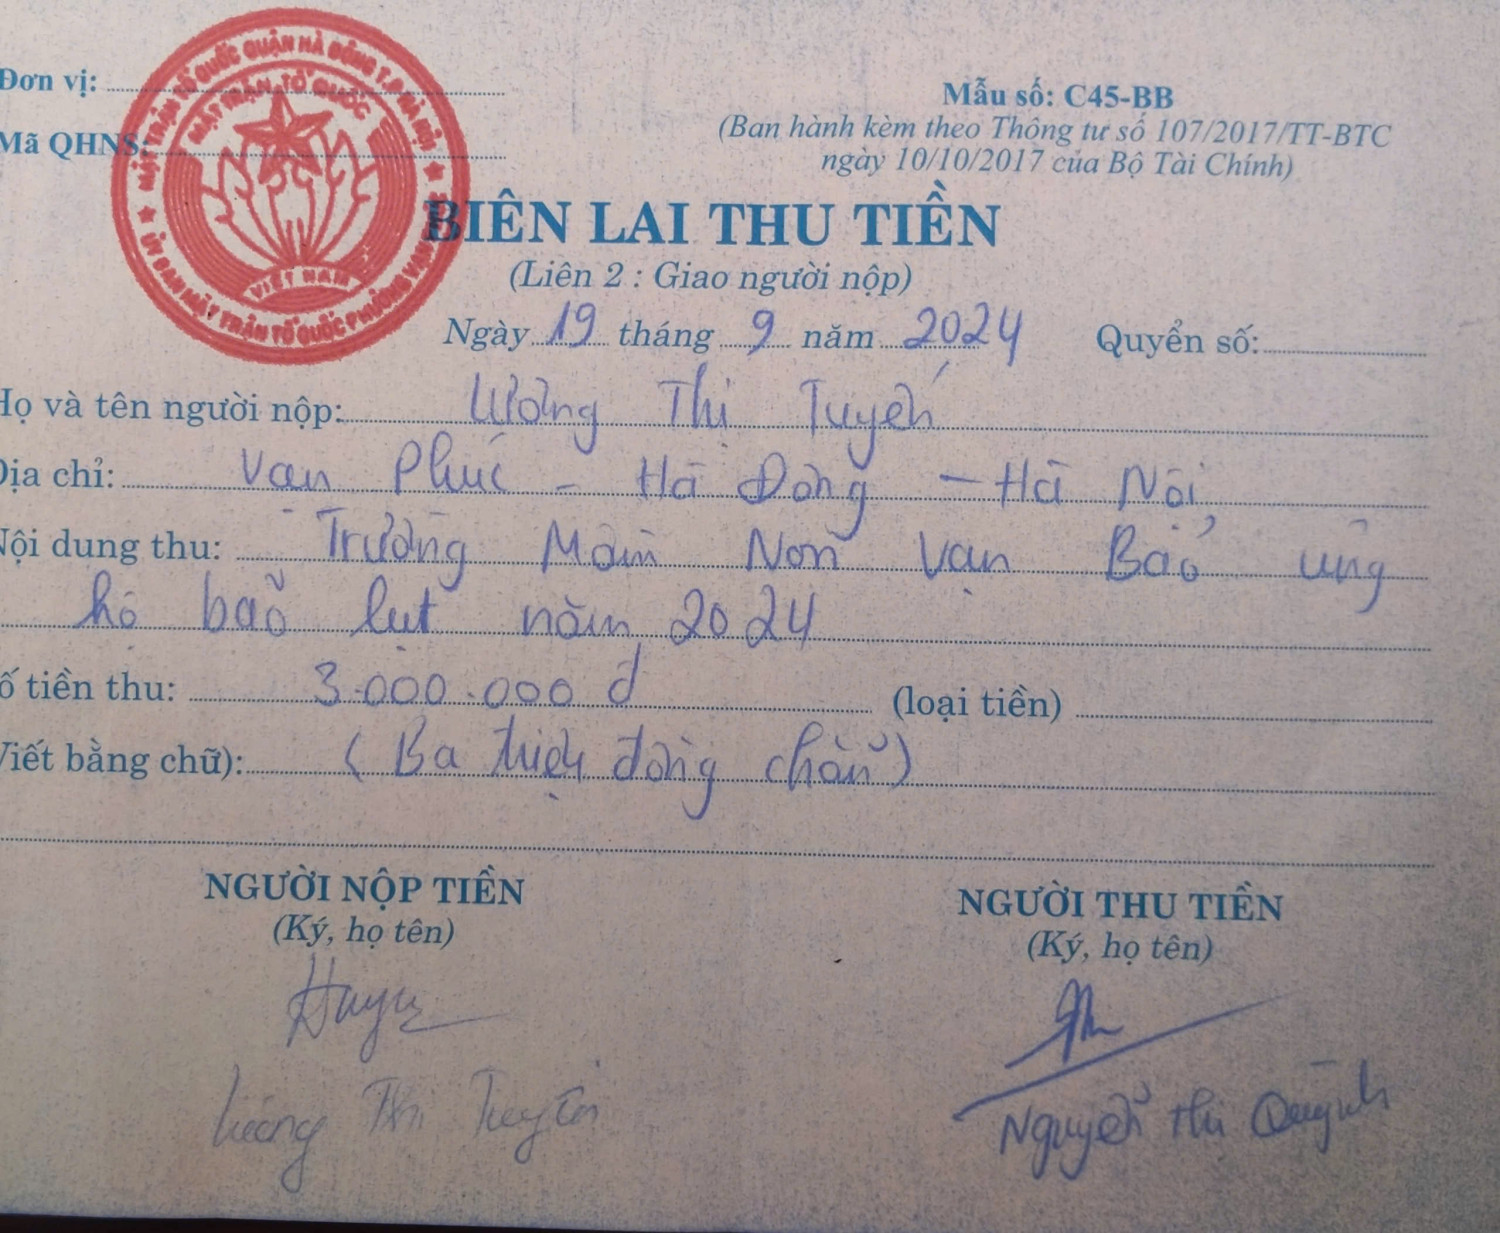 MẶT TRẬN TỔ QUỐC QUẬN HÀ ĐÔNG T.P HÀ NỘI
MẶT TRẬN TỔ QUỐC
VIỆT NAM
ỦY BAN MẶT TRẬN TỔ QUỐC PHƯỜNG VẠN
Đơn vị:
Mã QHNS:
Mẫu số: C45-BB
(Ban hành kèm theo Thông tư số 107/2017/TT-BTC
ngày 10/10/2017 của Bộ Tài Chính)
BIÊN LAI THU TIỀN
(Liên 2 : Giao người nộp)
Ngày 19 tháng 9 năm 2024 Quyển số:
Họ và tên người nộp: Lương Thị Tuyến
Địa chỉ: Vạn Phúc - Hà Đông - Hà Nội
Nội dung thu: Trường Mầm Non Vạn Bảo ủng
hộ bão lụt năm 2024
Số tiền thu: 3.000.000 đ (loại tiền)
Viết bằng chữ): (Ba triệu đồng chẵn)
NGƯỜI NỘP TIỀN
(Ký, họ tên)
NGƯỜI THU TIỀN
(Ký, họ tên)
Lương Thị Tuyến
Nguyễn Thị Quỳnh